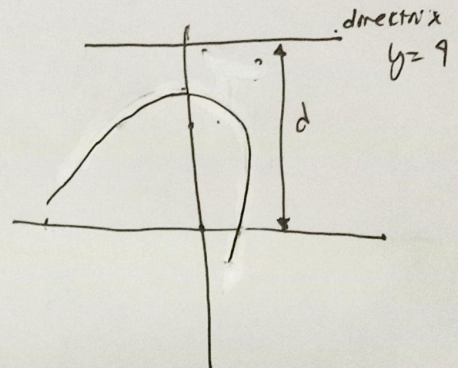 directrix
y= 9
d